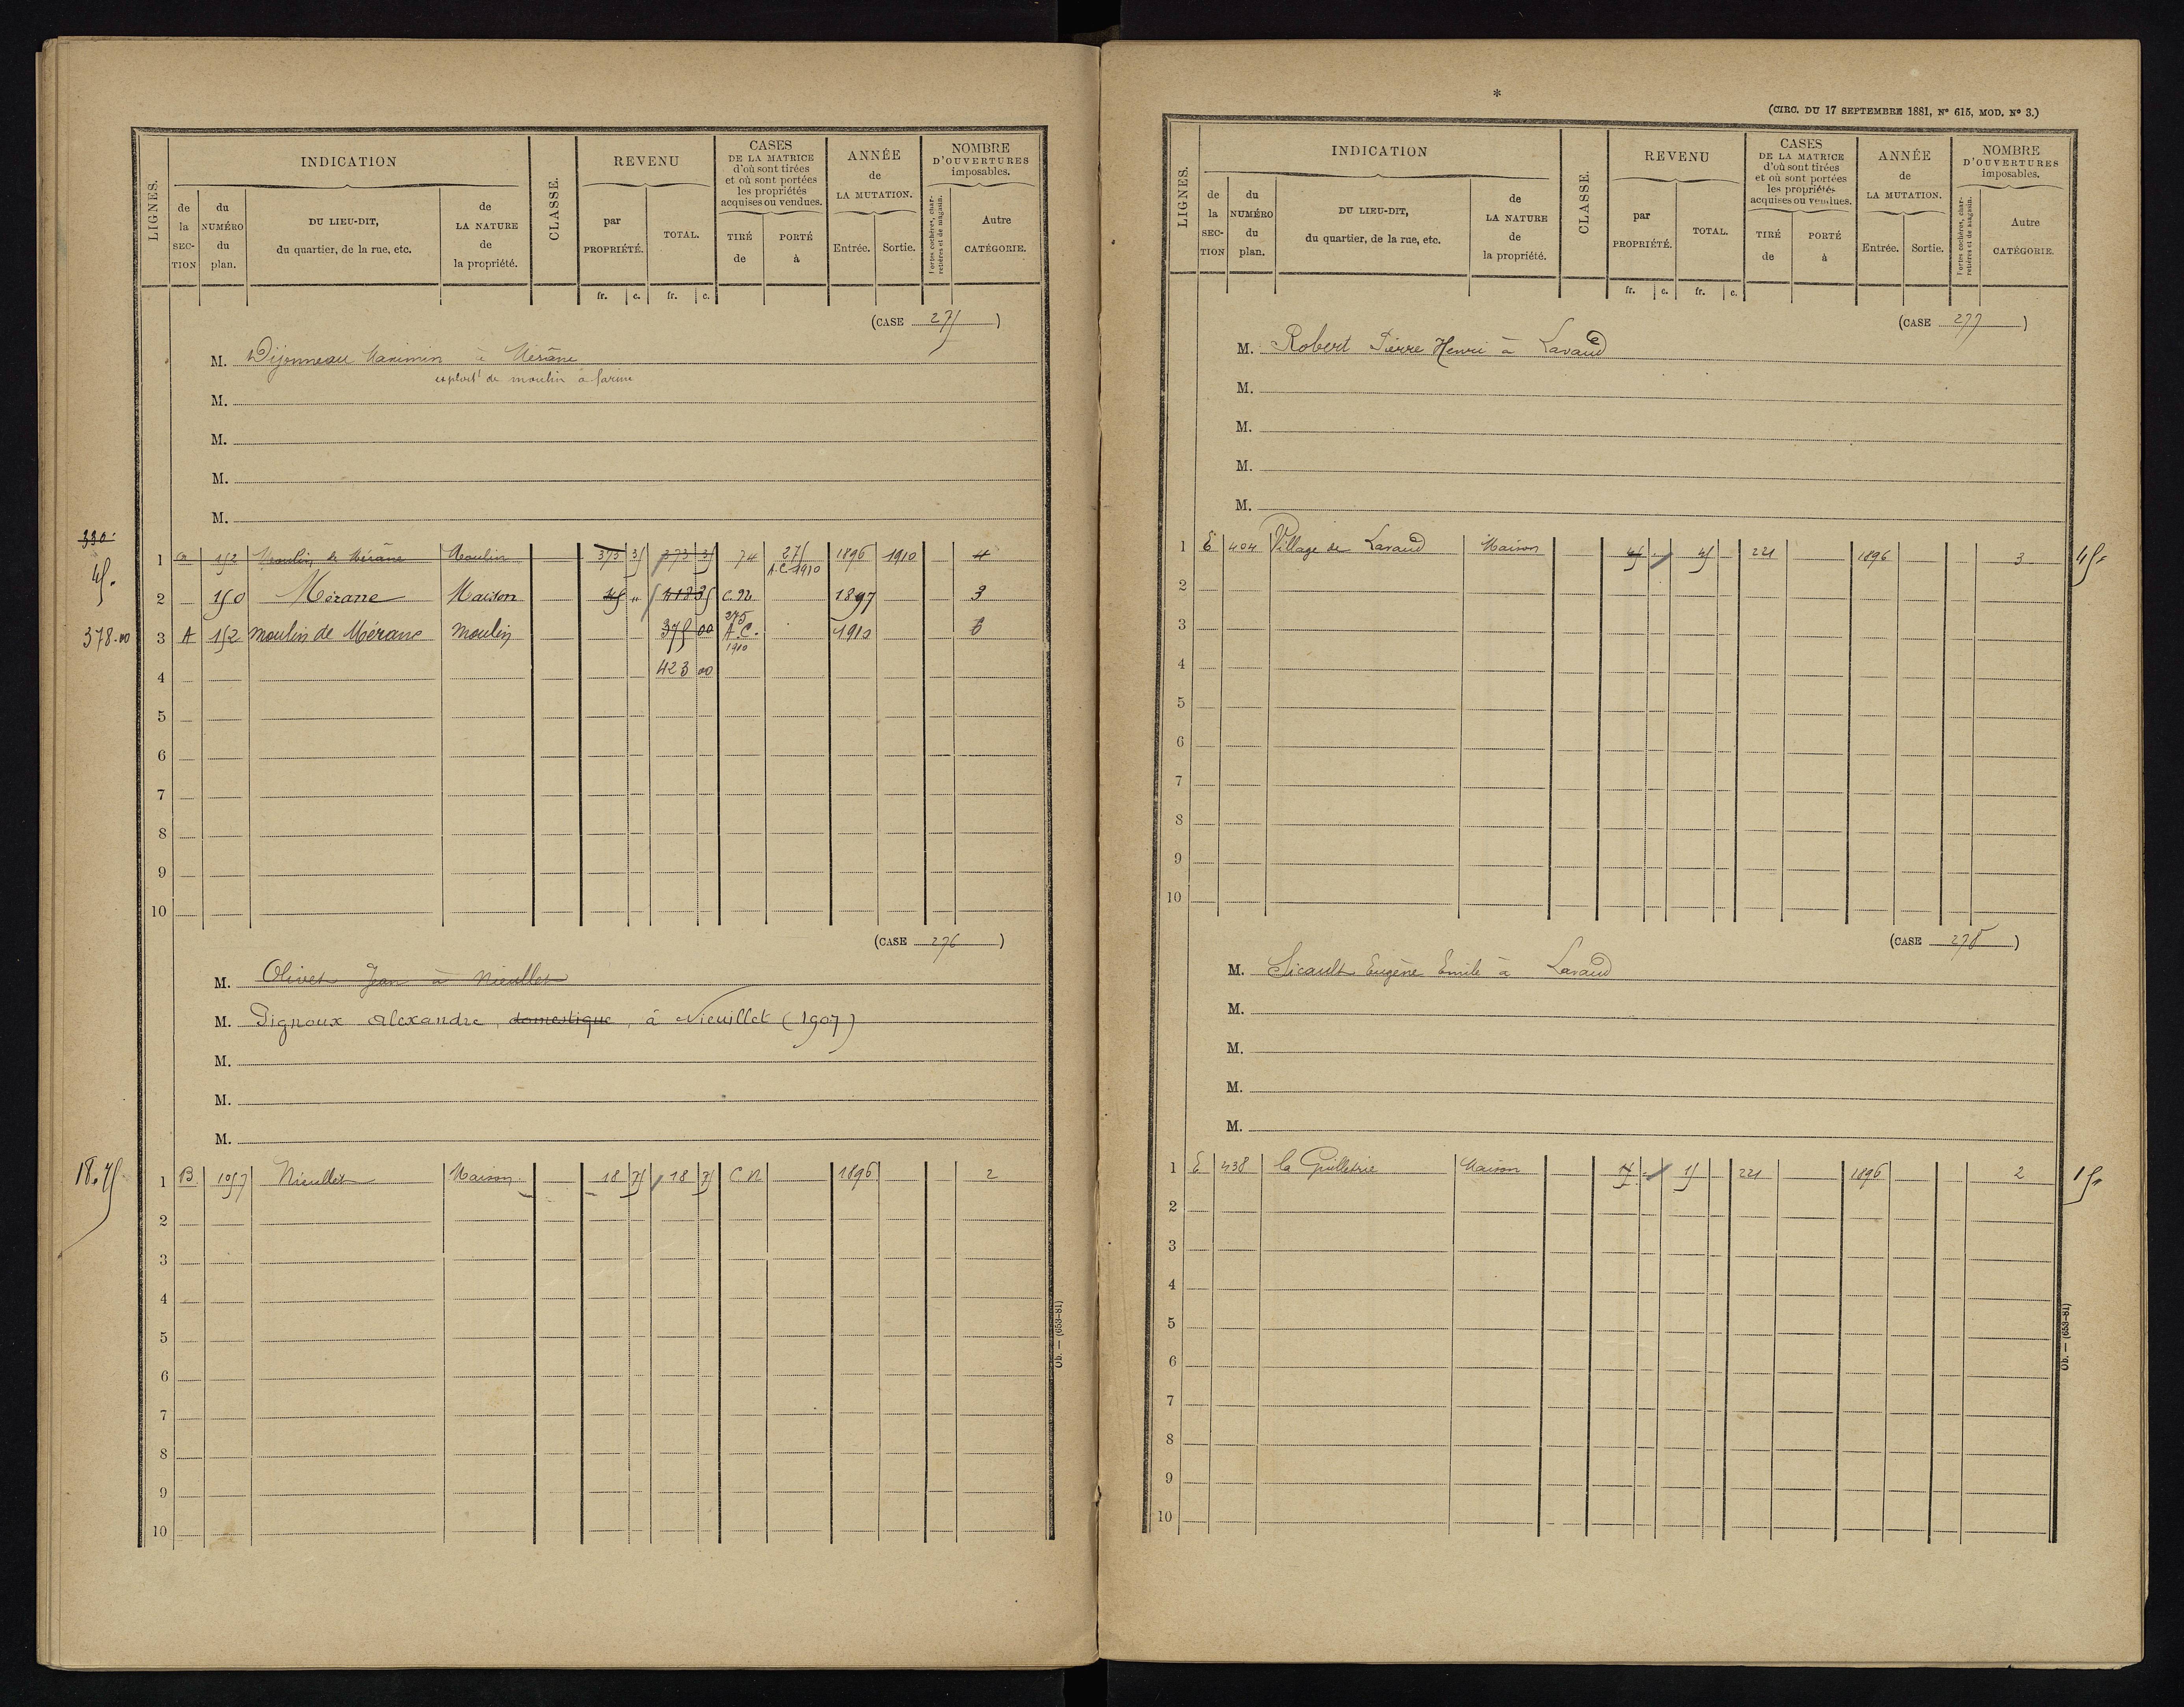 INDICATION
REVENU
CASES
DE LA MATRICE
d'où sont tirées
et où sont portées
les propriétés
acquises ou vendues.
ANNÉE
de
LA MUTATION.
NOMBRE
D'OUVERTURES
imposables.
LIGNES.
de la SEC-TION
du NUMÉRO du plan.
DU LIEU-DIT,
du quartier, de la rue, etc.
de LA NATURE de la propriété.
CLASSE.
par PROPRIÉTÉ.
TOTAL.
TIRÉ de
PORTÉ à
Entrée.
Sortie.
Portes cochères, charretières et de magasin.
Autre CATÉGORIE.
fr. c. fr. c.
(CASE 275)
M. Dijonneau Maximin à Mérane
exploit^t de moulin à farine
M.
M.
M.
M.
330.
1 A 152 Moulin de Mérane Moulin 373 35 373 35 74 275 A.C. 1910 1896 1910 4
45.
2 150 Mérane Maison 45 " 418 35 C.N. 1897 3
378.00 3 A 152 moulin de Mérane moulin 375 00 275 A.C. 1910 1910 6
4 423 00
5
6
7
8
9
10
(CASE 276)
M. Olivet Jean à Nieullet
M. Pignoux Alexandre, domestique, à Nieuillet (1907)
M.
M.
M.
18.75 1 B 1057 Nieullet Maison 18 75 18 75 C N 1896 2
2
3
4
5
6
7
8
9
10
Ob. — (653-81)
*
(CIRC. DU 17 SEPTEMBRE 1881, N° 615, MOD. N° 3.)
INDICATION
REVENU
CASES
DE LA MATRICE
d'où sont tirées
et où sont portées
les propriétés
acquises ou vendues.
ANNÉE
de
LA MUTATION.
NOMBRE
D'OUVERTURES
imposables.
LIGNES.
de la SEC-TION
du NUMÉRO du plan.
DU LIEU-DIT,
du quartier, de la rue, etc.
de LA NATURE de la propriété.
CLASSE.
par PROPRIÉTÉ.
TOTAL.
TIRÉ de
PORTÉ à
Entrée.
Sortie.
Portes cochères, charretières et de magasin.
Autre CATÉGORIE.
fr. c. fr. c.
(CASE 277)
M. Robert Pierre Henri à Lavaud
M.
M.
M.
M.
1 E 404 Village de Lavaud Maison 45 - 45 221 1896 3 45-
2
3
4
5
6
7
8
9
10
(CASE 278)
M. Sicault Eugène Emile à Lavaud
M.
M.
M.
M.
1 E 438 la Maison 15 - 15 221 1896 2 15-
2
3
4
5
6
7
8
9
10
Ob. — (653-81)